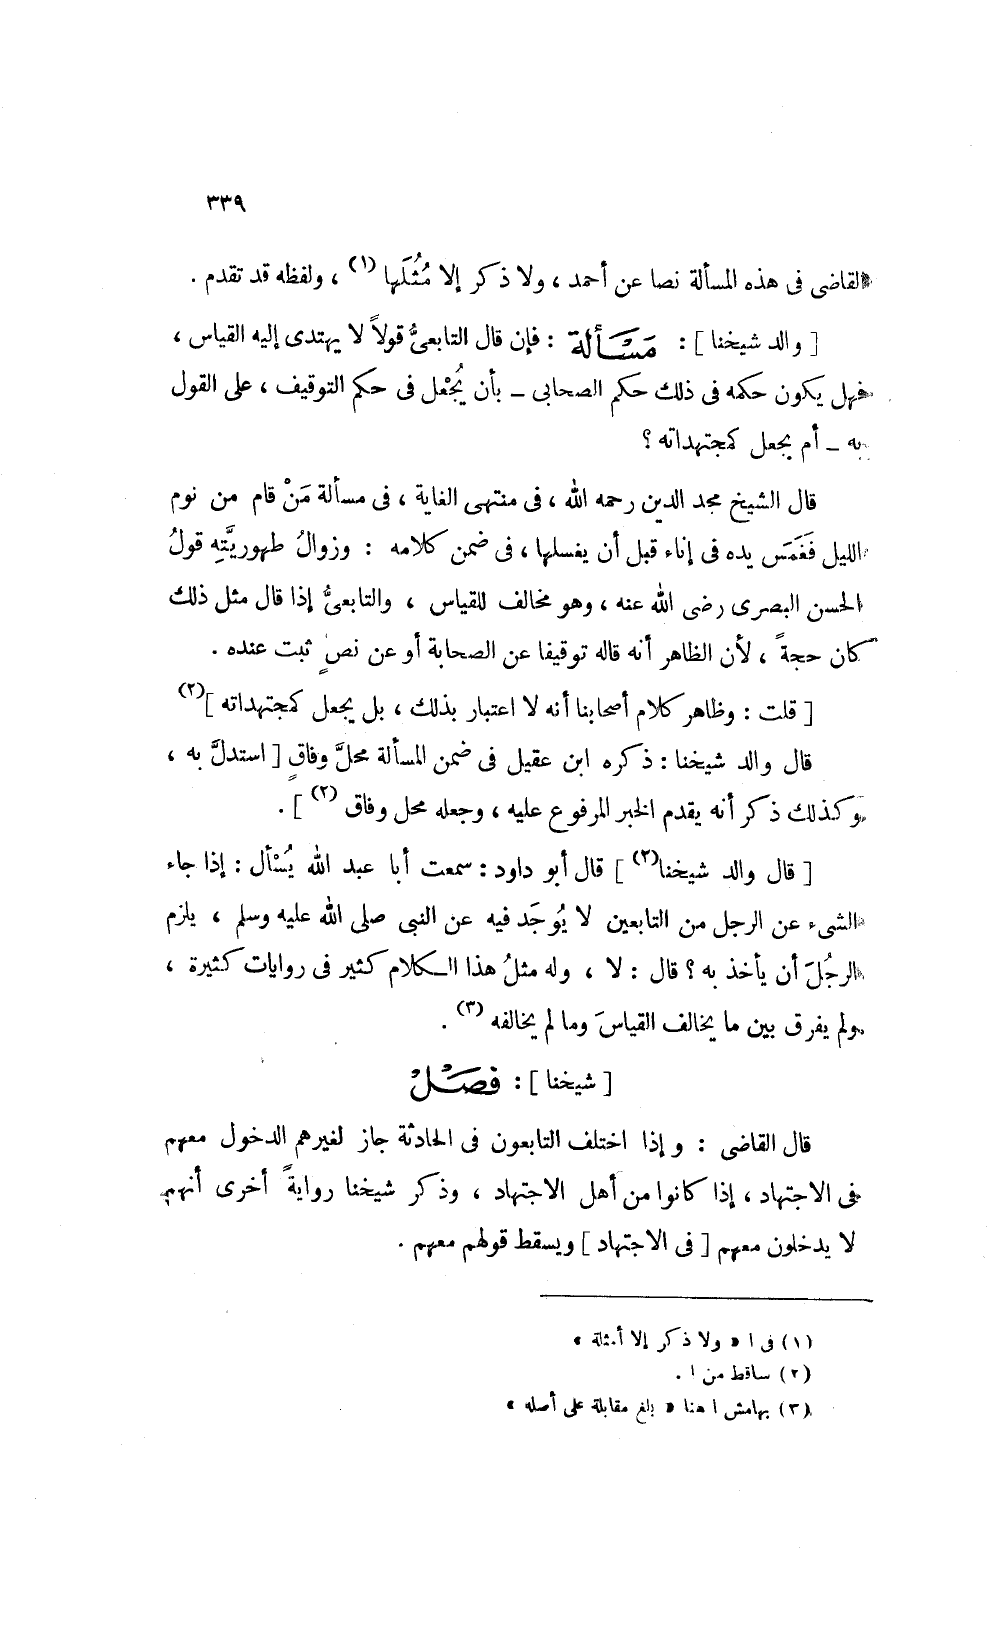 ٣٣٩
القاضى فى هذه المسألة نصا عن أحمد ، ولا ذكر إلا مُثُلَها (١) ، ولفظه قد تقدم .
[ والد شيخنا ] : مَسْـألة : فإن قال التابعىُّ قولاً لا يهتدى إليه القياس ،
فهل يكون حكمه فى ذلك حكم الصحابى ــ بأن يُجْعل فى حكم التوقيف ، على القول
به ــ أم يجعل كمجتهداته ؟
قال الشيخ مجد الدين رحمه الله ، فى منتهى الغاية ، فى مسألة مَنْ قام من نوم
الليل فَغَمَس يده فى إناء قبل أن يغسلها ، فى ضمن كلامه : وزوالُ طهوريَّتِه قولُ
الحسن البصرى رضى الله عنه ، وهو مخالف للقياس ، والتابعىُّ إذا قال مثل ذلك
كان حجةً ، لأن الظاهر أنه قاله توقيفا عن الصحابة أو عن نصٍ ثبت عنده .
[ قلت : وظاهر كلام أصحابنا أنه لا اعتبار بذلك ، بل يجعل كمجتهداته ](٢)
قال والد شيخنا : ذكره ابن عقيل فى ضمن المسألة محلَّ وفاقٍ [ استدلَّ به ،
وكذلك ذكر أنه يقدم الخبر المرفوع عليه ، وجعله محل وفاق (٢) ] .
[ قال والد شيخنا(٢) ] قال أبو داود : سمعت أبا عبد الله يُسْأل : إذا جاء
الشىء عن الرجل من التابعين لا يُوجَد فيه عن النبى صلى الله عليه وسلم ، يلزم
الرجُلَ أن يأخذ به ؟ قال : لا ، وله مثلُ هذا الـكلام كثير فى روايات كثيرة ،
ولم يفرق بين ما يخالف القياسَ وما لم يخالفه (٣) .
[ شيخنا ] : فَصْـلْ
قال القاضى : وإذا اختلف التابعون فى الحادثة جاز لغيرهم الدخول معهم
فى الاجتهاد ، إذا كانوا من أهل الاجتهاد ، وذكر شيخنا روايةً أخرى أنهم
لا يدخلون معهم [ فى الاجتهاد ] ويسقط قولهم معهم .
(١) فى ا « ولا ذكر إلا أمثلة »
(٢) ساقط من ا .
(٣) بهامش ا هنا « بلغ مقابلة على أصله »